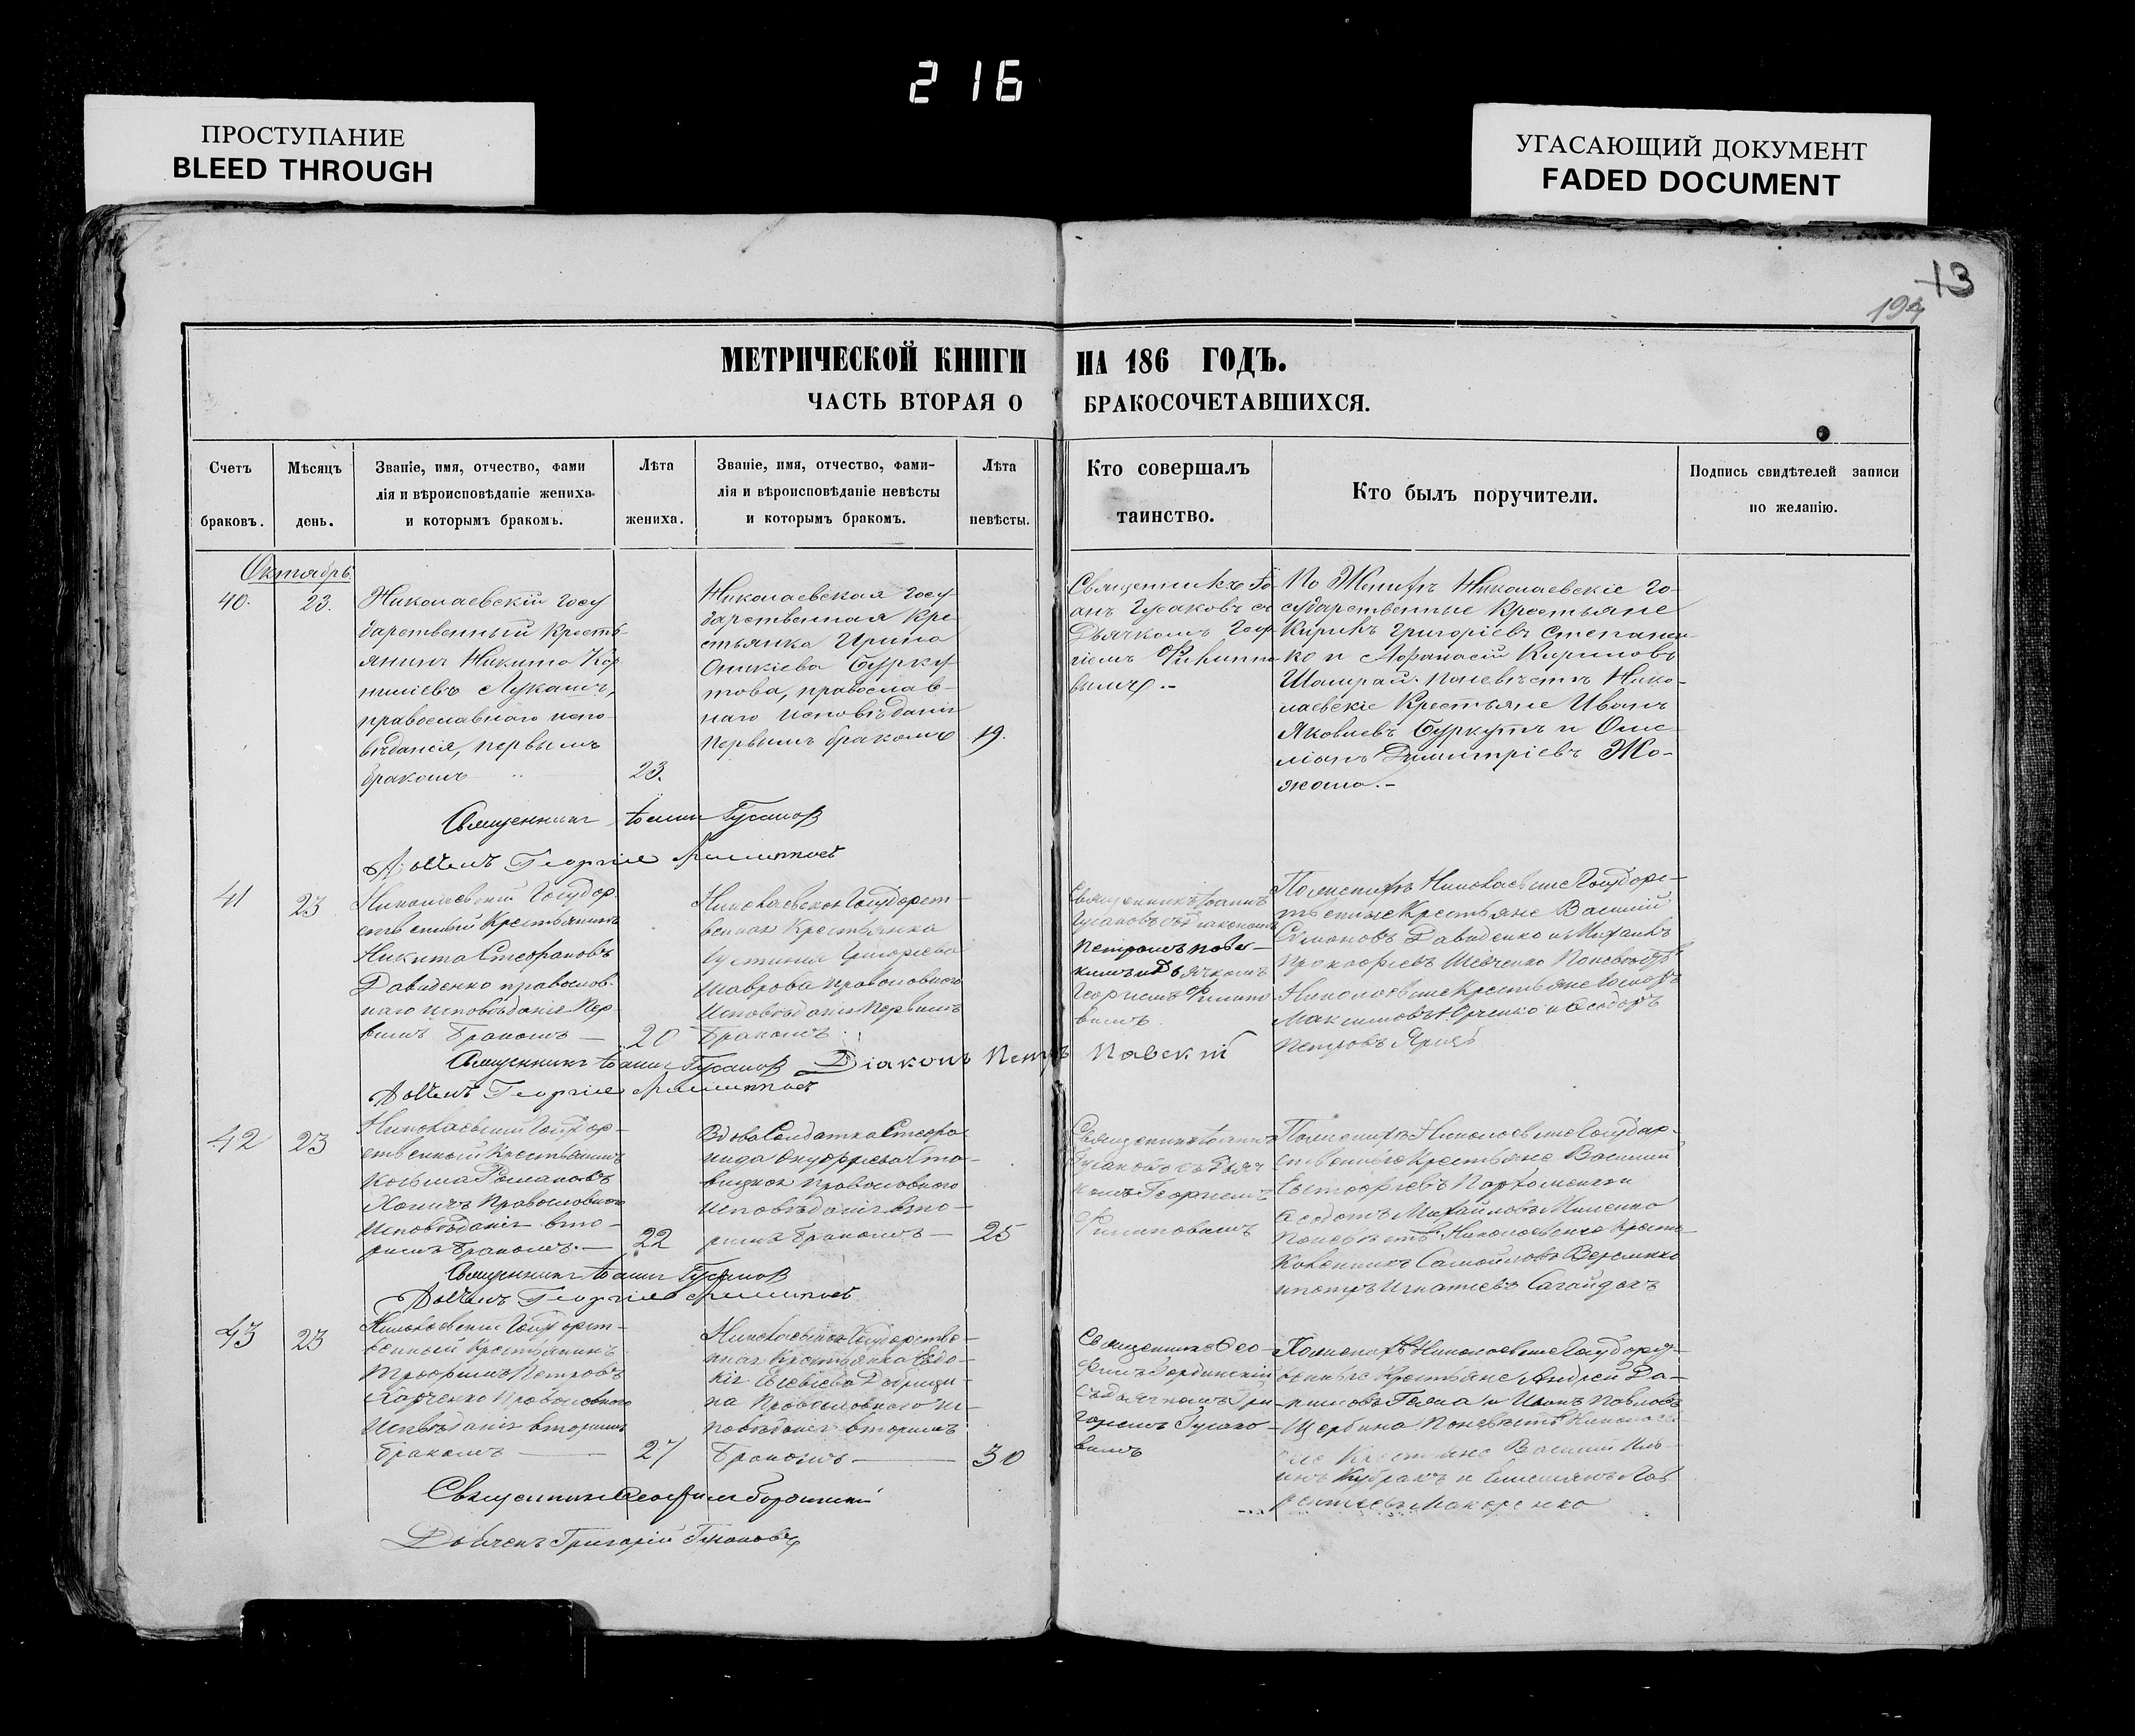 216
ПРОСТУПАНИЕ
BLEED THROUGH
УГАСАЮЩИЙ ДОКУМЕНТ
FADED DOCUMENT
13
194
МЕТРИЧЕСКОЙ КНИГИ НА 186 ГОДЪ.
ЧАСТЬ ВТОРАЯ О БРАКОСОЧЕТАВШИХСЯ.
Счетъ
браковъ.
Мѣсяцъ
день.
Званіе, имя, отчество, фами
лія и вѣроисповѣданіе жениха
и которымъ бракомъ.
Лѣта
жениха.
Званіе, имя, отчество, фами-
лія и вѣроисповѣданіе невѣсты
и которымъ бракомъ.
Лѣта
невѣсты.
Кто совершалъ
таинство.
Кто былъ поручители.
Подпись свидѣтелей записи
по желанію.
Октябрь
40.
23.
Николаевскій госу
дарственный кресть
янинъ Никита Кор
ниліевъ Лукашъ,
православнаго испо
вѣданія, первымъ
бракомъ
23.
Николаевская госу
дарственная кре
стьянка Ирина
Оникіева Бурку
това, православ-
наго исповѣданія
первымъ бракомъ
19.
Священникъ Іо-
анъ Гусаковъ съ
Дьячкомъ Геор-
гіемъ Филиппо
вымъ.-
По Женихѣ Николаевскіе го-
сударственные крестьяне
Кирикъ Григоріевъ Степанен-
ко и Афанасій Кириловъ
Шамрай. По невѣстѣ Нико-
лаевскіе Крестьяне Иванъ
Яковлевъ Буркутъ и Оме-
ліанъ Димитріевъ Жо-
жома.-
Священникъ Іоанн Гусаков
41
23
Николаевскій Государ
ственный Крестьянинъ
Никита Стефановъ
Давиденко православ-
наго исповѣданія Пер
вымъ Бракомъ —
20
Николаевская Государст-
венная Крестьянка
Іустинія Григоріева
Шаврова православнаго
Исповѣданія Первымъ
Бракомъ
Священникъ Іоаннъ
Гусаковъ съ Діакономъ
Петромъ Павс-
кимъ и Дьячкомъ
Георгіемъ Филиппо
вымъ
По женихѣ Николаевскіе Государс-
твенные Крестьяне Василій
Симоновъ Давиденко и Михаилъ
Прокофіевъ Шевченко По невѣстѣ
Николаевскіе Крестьяне
Максимовъ Юрченко и Феодоръ
Петровъ
Священникъ Іоанн Гусаков Діаконъ Петръ Павскій
42
23
Николаевскій Государ-
ственный Крестьянинъ
Козьма Романовъ
Православнаго
Исповѣданія вто-
рымъ Бракомъ.—
22
Вдова Солдатка Стефа
нида Онуфріева
Православнаго
Исповѣданія вто-
рымъ Бракомъ —
25
Священникъ Іоаннъ
Гусаковъ съ Дьяч
комъ Георгіемъ
Филиповымъ
По женихѣ Николаевскіе Государ-
ственные Крестьяне Василій
Евстафіевъ Пархоменко и
Феодотъ Михайловъ
По невѣстѣ Николаевскіе Кресть-
Самойловъ Веремѣнко
Игнатіевъ Сагайдакъ
Священникъ Іоанн Гусаков
43
23
Николаевскій Государст-
венный Крестьянинъ
Трофимъ Петровъ
Харченко Православнаго
Исповѣданія вторымъ
бракомъ —
27
Николаевская Государстве-
нная Крестьянка Евдо-
кія
на Православнаго Ис-
повѣданія вторымъ
Бракомъ —
30
Священникъ Фео-
съ Дьячкомъ Гри
горіемъ Гусако-
вымъ
По женихѣ Николаевскіе Государст-
венные Крестьяне Андрей Да-
ниловъ и Иванъ Павловъ
Щербина По невѣстѣ Николаев
Крестьяне Василій
Кубракъ и Емеліянъ Лав
рентіевъ Макаренко
Дьячекъ Григорій Гусаковъ